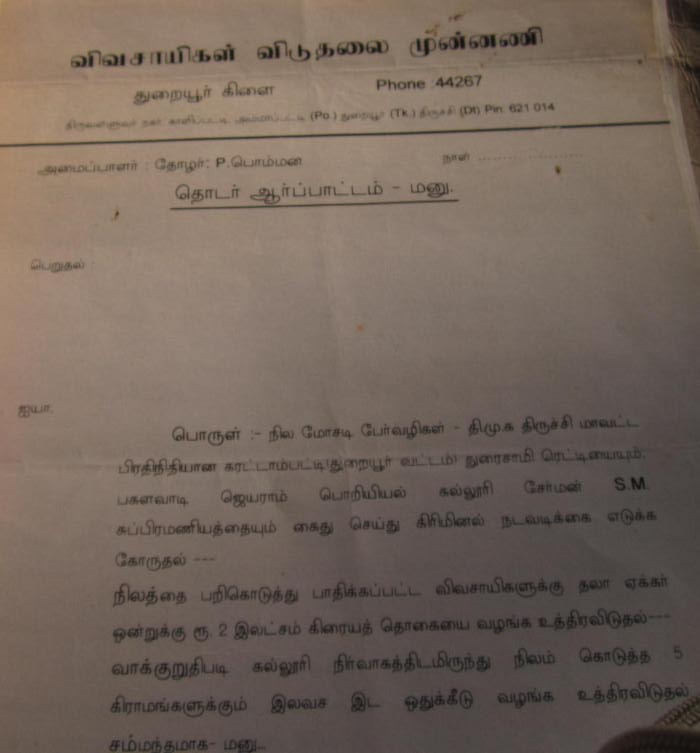 விவசாயிகள் விடுதலை முன்னணி
துறையூர் கிளை Phone :44267
திருவள்ளுவர் நகர் காளிப்பட்டி அம்மாப்பட்டி (Po.) துறையூர் (Tk.) திருச்சி (Dt) Pin: 621 014
அமைப்பாளர் : தோழர்: P.பொம்மன நாள் ........................
தொடர் ஆர்ப்பாட்டம் - மனு.
பெறுதல் :
ஐயா,
பொருள் :- நில மோசடி பேர்வழிகள் - திமு.க திருச்சி மாவட்ட
பிரதிநிதியான கரட்டாம்பட்டி(துறையூர் வட்டம்) துரைசாமி ரெட்டியையும்,
பகளவாடி ஜெயராம் பொறியியல் கல்லூரி சேர்மன் S.M.
சுப்பிரமணியத்தையும் கைது செய்து கிரிமினல் நடவடிக்கை எடுக்க
கோருதல் ---
நிலத்தை பறிகொடுத்து பாதிக்கப்பட்ட விவசாயிகளுக்கு தலா ஏக்கர்
ஒன்றுக்கு ரூ. 2 இலட்சம் கிரையத் தொகையை வழங்க உத்திரவிடுதல்---
வாக்குறுதிபடி கல்லூரி நிர்வாகத்திடமிருந்து நிலம் கொடுத்த 5
கிராமங்களுக்கும் இலவச இட ஒதுக்கீடு வழங்க உத்திரவிடுதல்
சம்மந்தமாக- மனு...